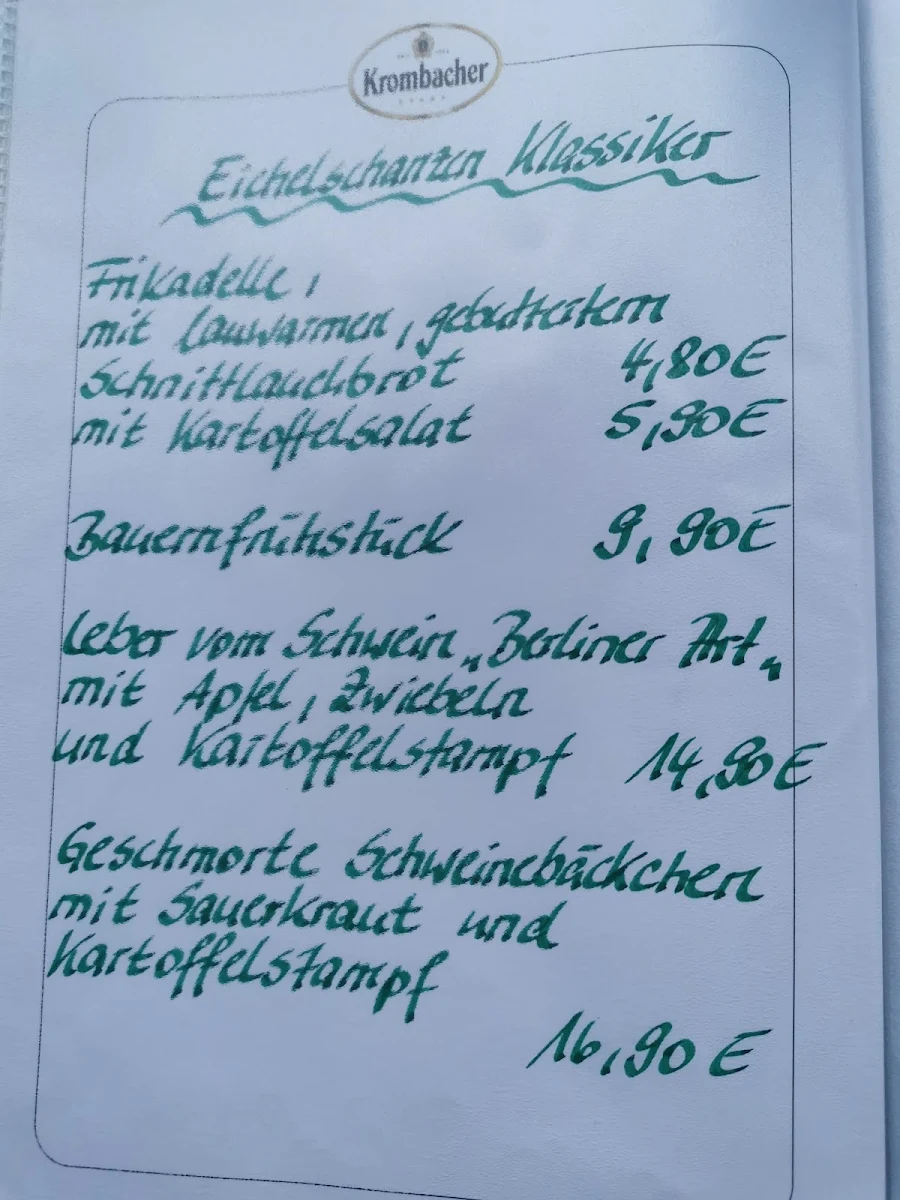 Krombacher
Eichelschanzen Klassiker
Frikadelle,
mit lauwarmen, gebuttertem
Schnittlauchbrot 4,80E
mit Kartoffelsalat 5,90E
Bauernfrühstück 9,90E
Leber vom Schwein „Berliner Art„
mit Apfel, Zwiebeln
und Kartoffelstampf 14,90E
Geschmorte Schweinebäckchen
mit Sauerkraut und
Kartoffelstampf
16,90 E